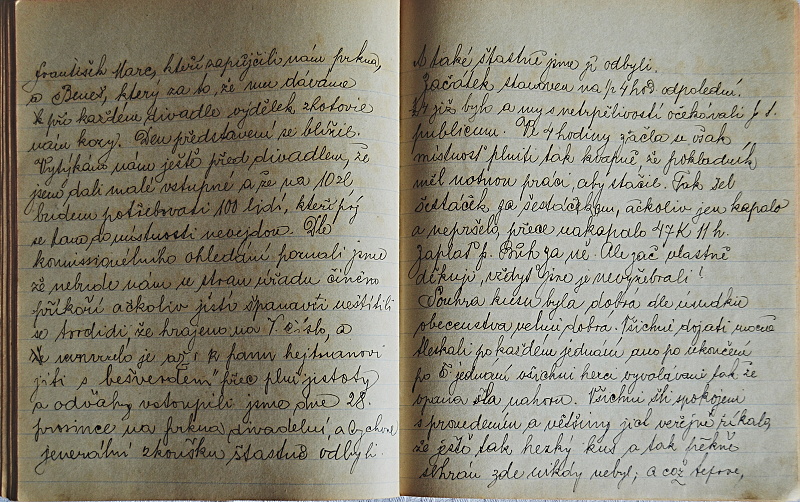 František Marc, kteří zapůjčili nám prkna,
a Beneš, který za to, že mu dáváme
při každém divadle výdělek zhotovil
nám kozy. Den představení se blížil.
Vytýkáno nám ještě před divadlem, že
jsme dali malé vstupné a že na 10 zl
budem potřebovati 100 lidí, kteří prý
se tam do místnosti nevejdou. Dle
komissionelního ohledání poznali jsme
že nebude nám se stran úřadu činěno
příkoří ačkoliv jistí neštítili
se tvrditi, že hrajeme na 7 číslo, a
až k panu hejtmanovi
jíti s "bešverdem" přec plni jistoty
a odvahy vstoupili jsme dne 28.
prosince na prkna divadelní, abychom
jenerální zkoušku šťastně odbyli.
A také šťastně jsme ji odbyli.
Začátek stanoven na ½ 4 hod odpolední.
již bylo a my s netrpělivostí očekávali
publicum. Ve 4 hodiny začla se však
místnost plniti tak kvapně že pokladník
měl notnou práci, aby stačil. Tak šel
šestáček za šestáčkem, ačkoliv jen kapalo
a nepršelo, přece nakapalo 47 K 11 h.
Zaplať p. Bůh za ně. Ale zač vlastně
děkuji, vždyť jsme je nevyžebrali!
Souhra kusu byla dobrá dle úsudku
obecenstva velmi dobrá. Všichni dojati mocně
tleskali po každém jednání, ano po ukončení
po 5 jednání všichni herci vyvoláváni tak že
opona šla nahoru. Všichni šli spokojeni
s provedením a většinu jich veřejně říkala,
že ještě tak hezký kus a tak pěkně
sehrán zde nikdy nebyl; a což teprve,